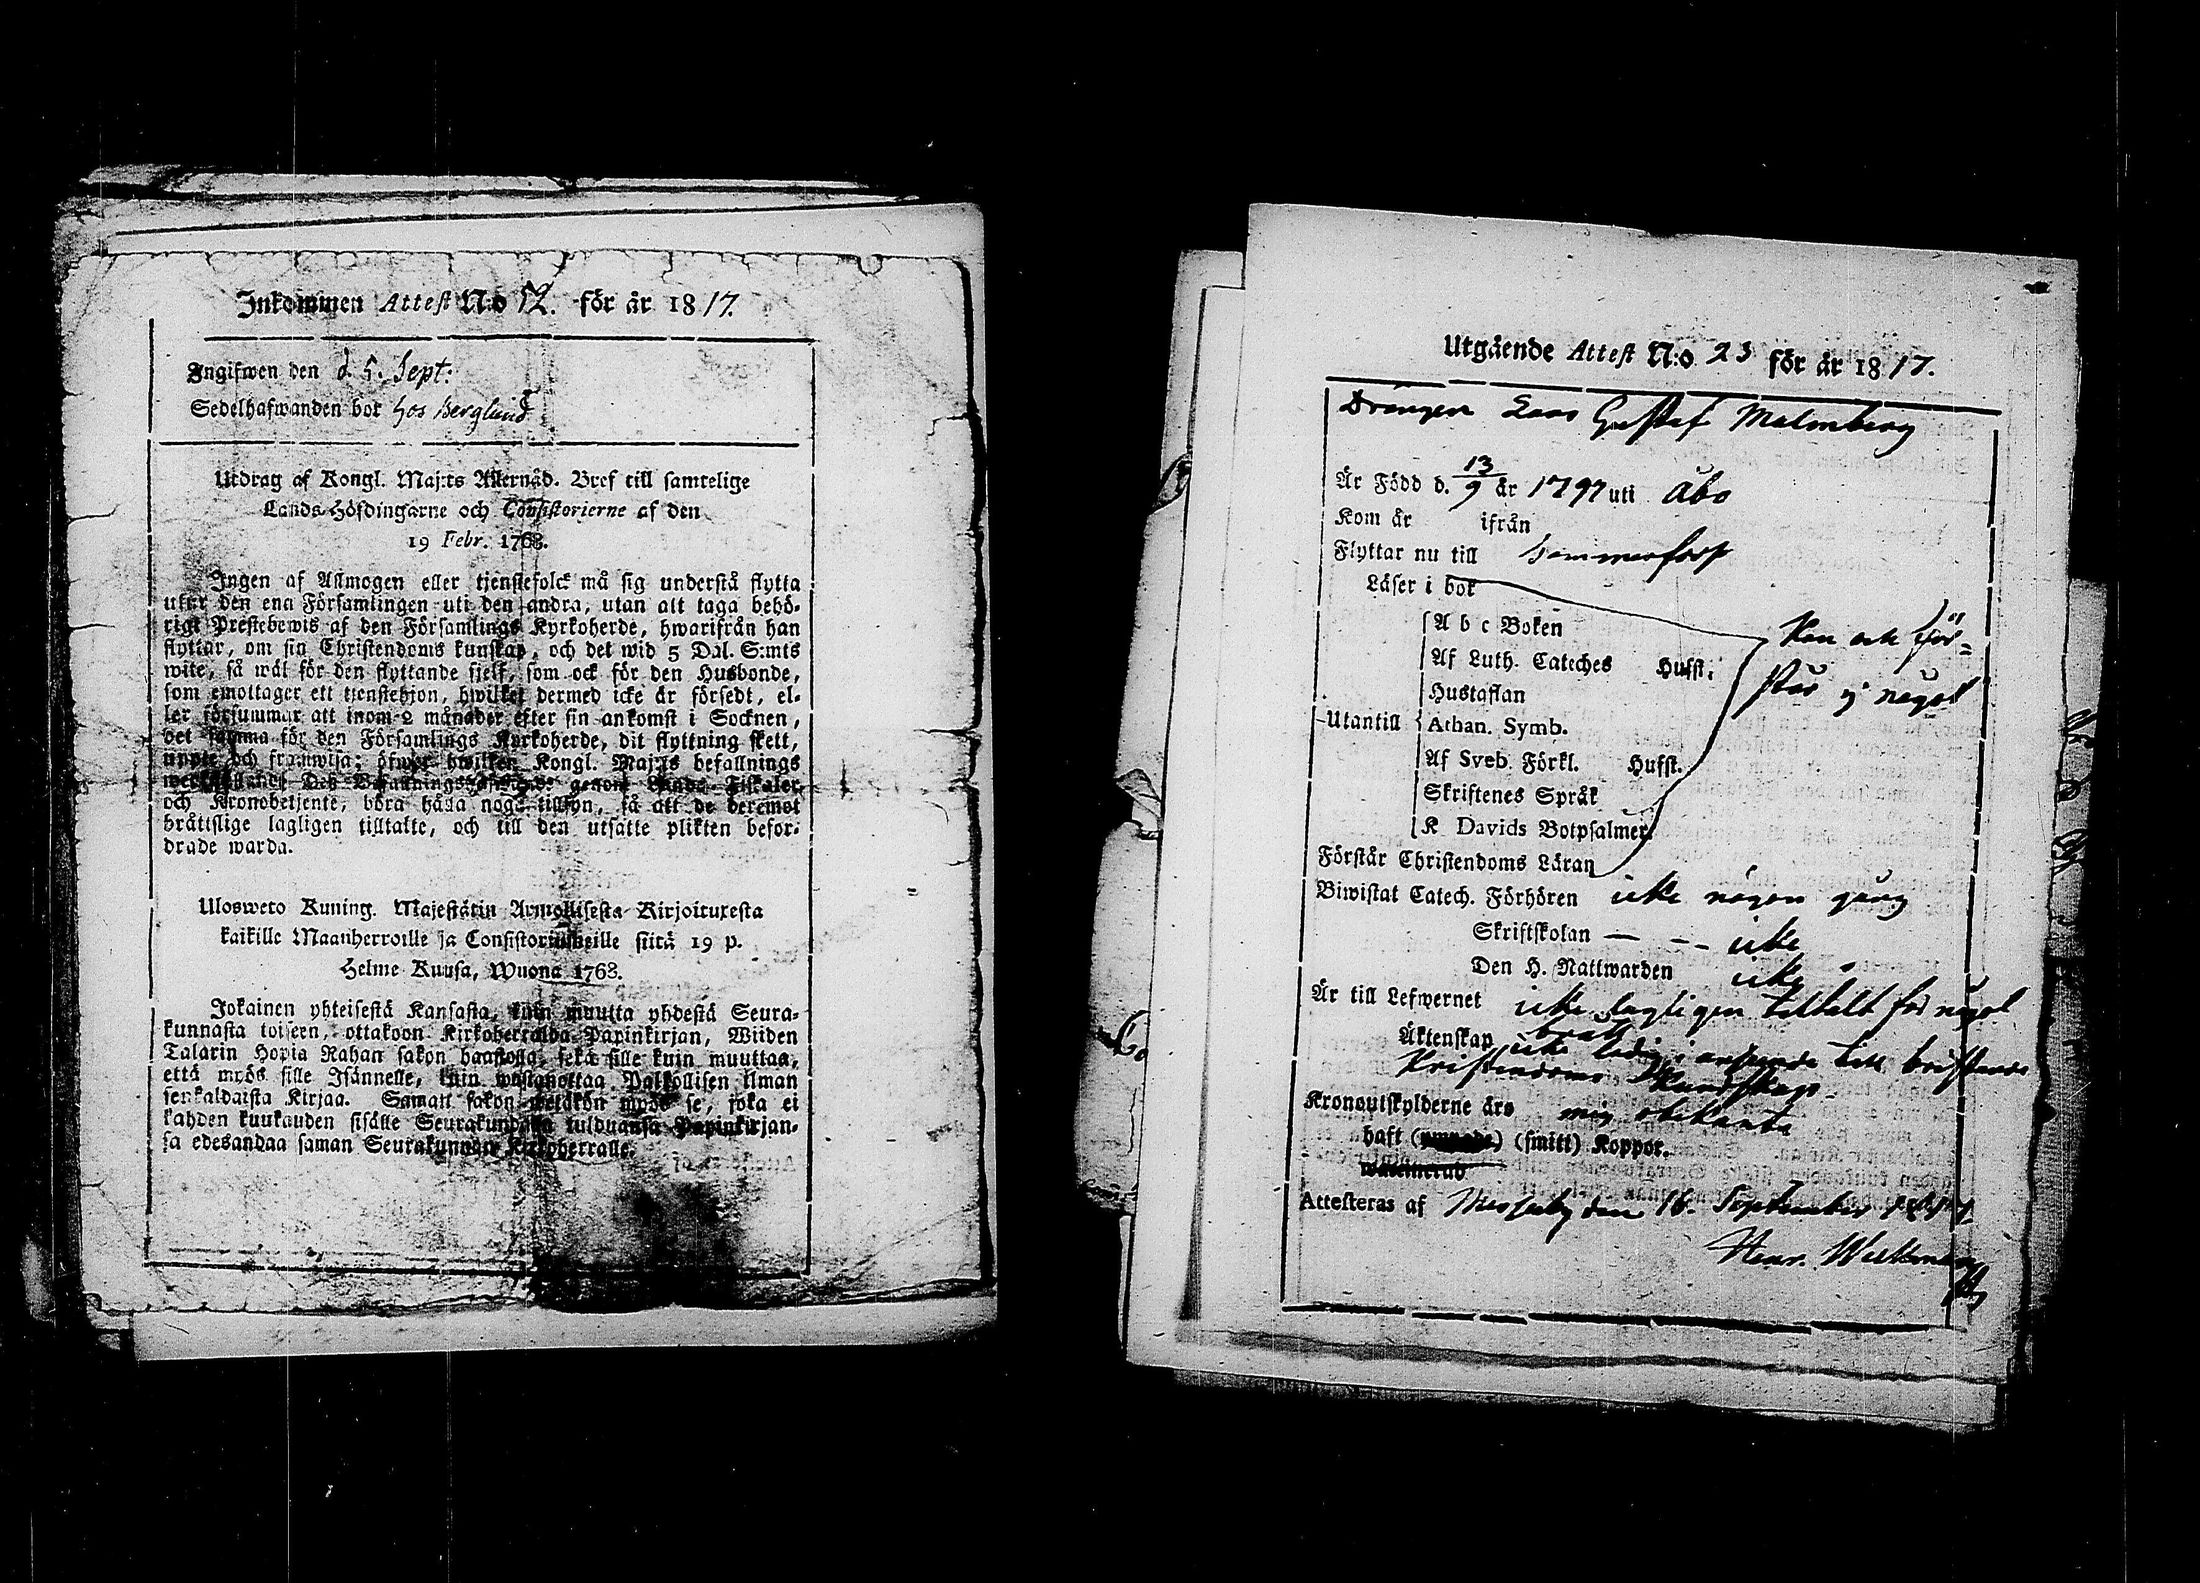 Inkommen Attest N:o 52. för år 1817.
Ingifwen den d. 5. Sept:
Sedelhafwanden bor hos Berglund
Utdrag af Kongl. Maj:ts Allernåd. Bref till samtelige
Lands-Höfdingarne och Consistorierne af den
19 Febr. 1768.
Ingen af Allmogen eller tjenstefolck må sig understå flytta
utur den ena Församlingen uti den andra, utan att taga behö-
rigt Prestebewis af den Församlings Kyrkoherde, hwarifrån han
flyttar, om sin Christendoms kunskap, och det wid 5 Dal. S:mts
wite, så wäl för den flyttande sjelf, som ock för den Husbonde,
som emottager ett tjenstehjon, hwilket dermed icke är försedt, el-
ler försummar att inom 2 månader efter sin ankomst i Socknen,
det samma för den Församlings Kyrkoherde, dit flyttning skett,
uppte och framwisa; öfwer hwilket Kongl. Maj:ts befallnings
genom Lands-Fiskaler
och Kronobetjente, böra hålla noga tillsyn, så att de deremot
bråttslige lagligen tilltalte, och till den utsatte plikten befor-
drade warda.
Ulosweto Kuning. Majestätin Armollisesta Kirjoituxesta
kaikille Maanherroille ja Consistoriumeille siitä 19 p.
Helme Kuusa, Wuona 1768.
Jokainen yhteisestä Kansasta, kuin muutta yhdestä Seura-
kunnasta toiseen, ottakoon Kirkoherralda Papinkirjan, Wiiden
Talarin Hopia Rahan sakon haastolla, sekä sille kuin muuttaa,
että myös sille Isännelle, kuin wastanottaa Palkollisen ilman
senkaldaista Kirjaa. Saman sakon wetäkön myös se, joka ei
kahden kuukauden sisälle Seurakundaan tulduansa Papinkirjan-
sa edesandaa saman Seurakunnan Kirkoherralle.
Utgående Attest N:o 23 för år 1817.
Drängen Lars Gustaf Malmberg
Är Född d. 13/9 år 1797 uti Åbo
Kom år ifrån
Flyttar nu till
Läser i bok
A b c Boken
Kan och för=
Af Luth. Cateches Hufst.
står ej något
Hustaflan
Utantill Athan. Symb.
Af Sveb. Förkl. Hufst.
Skriftenes Språk
K Davids Botpsalmer
Förstår Christendoms Läran
Biwistat Catech. Förhören icke någon gång
Skriftskolan — -- icke
Den H. Nattwarden icke
Är till Lefwernet icke lagligen tilltalt för något
brott
Äktenskap icke ledig i anseende till bristande
Kristendoms Kundskap
Kronoutskylderne äro mig obekanta
haft (smitt) Koppor.
Attesteras af den 16. September 1817.
Henr.